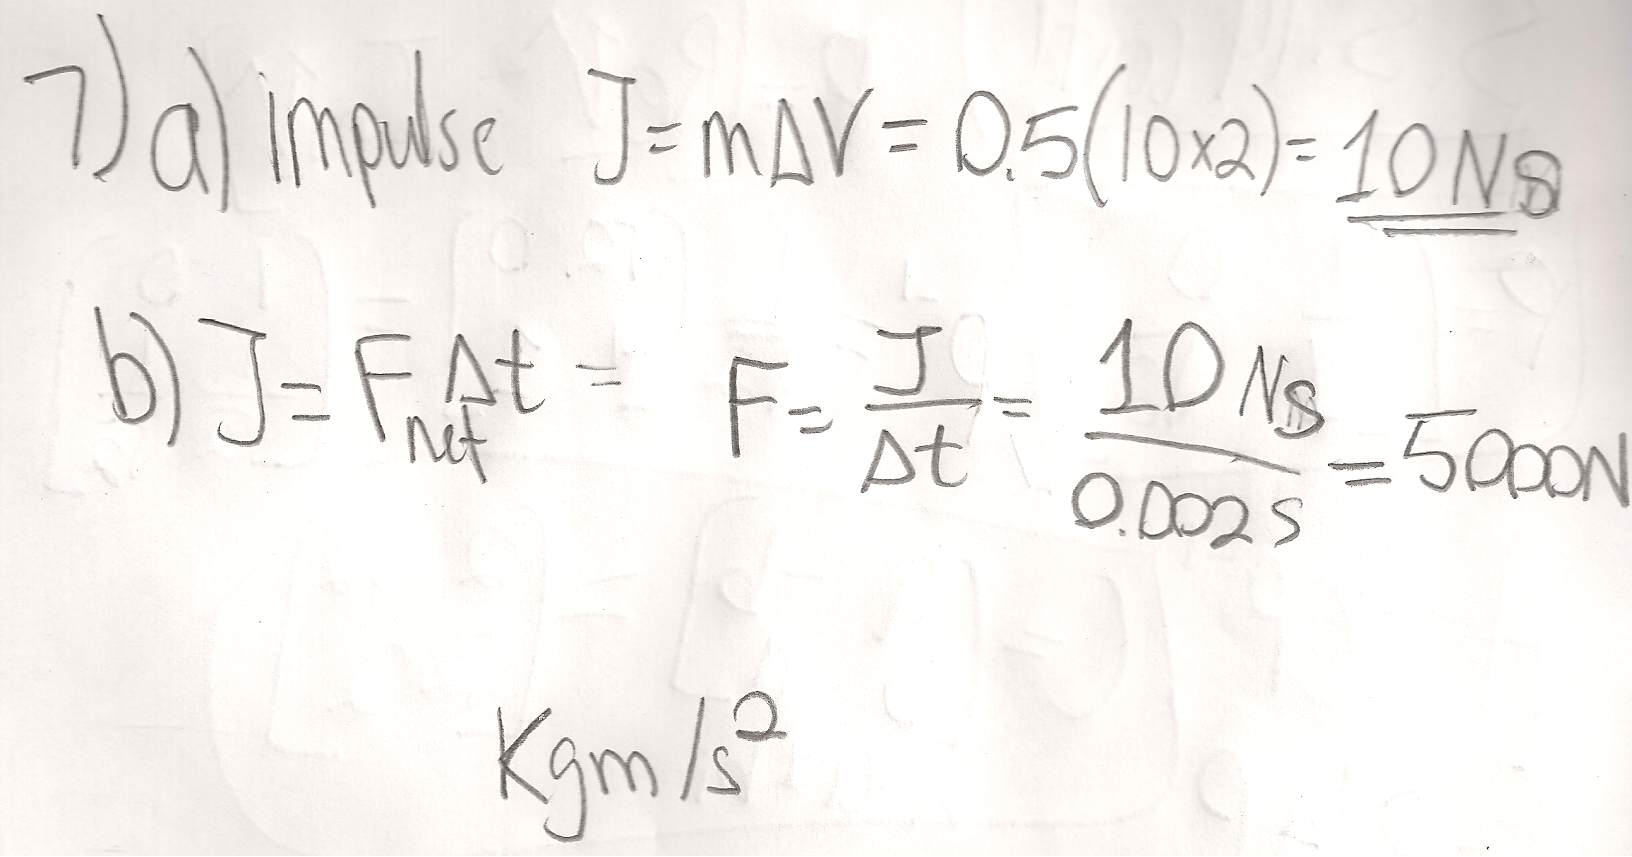 7) a) impulse J = mΔV = 0.5(10x2) = 10 Ns
b) J = F net Δt = F = J/Δt = 10 Ns/0.002 s = 5000N
Kgm/s²